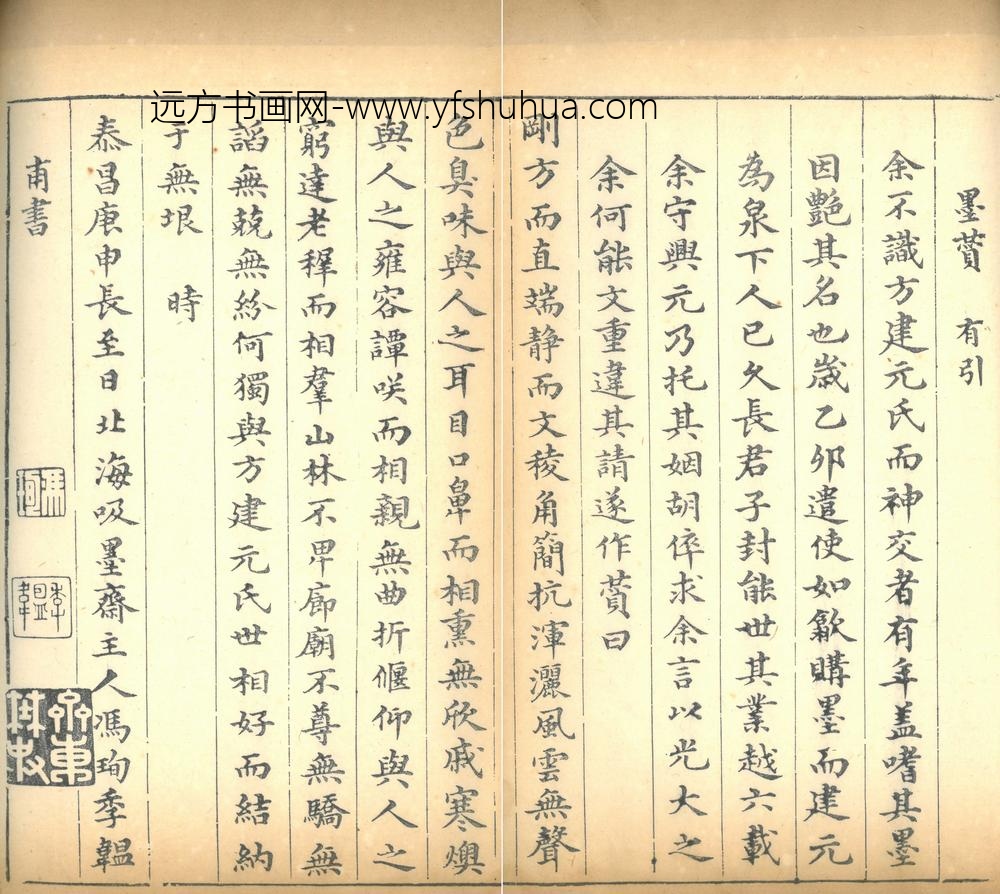 远方书画网-www.yfshuhua.com
墨蕒 有引
余不識方建元氏而神交者有年盖嗜其墨
因艷其名也歲乙卯遣使如歙購墨而建元
為泉下人已久長君子封能世其業越六載
余守興元乃托其姻胡倅求余言以光大之
余何能文重違其請遂作蕒曰
剛方而直端静而文稜角簡抗渾灑風雲無聲
色臭味與人之耳目口鼻而相熏無欣戚寒燠
與人之雍容譚咲而相親無曲折偃仰與人之
窮達老穉而相羣山林不卑廊廟不尊無驕無
謟無兢無紛何獨與方建元氏世相好而結納
于無垠 時
泰昌庚申長至日北海吸墨齋主人馮珣季韞
甫書
馮珣
季韞